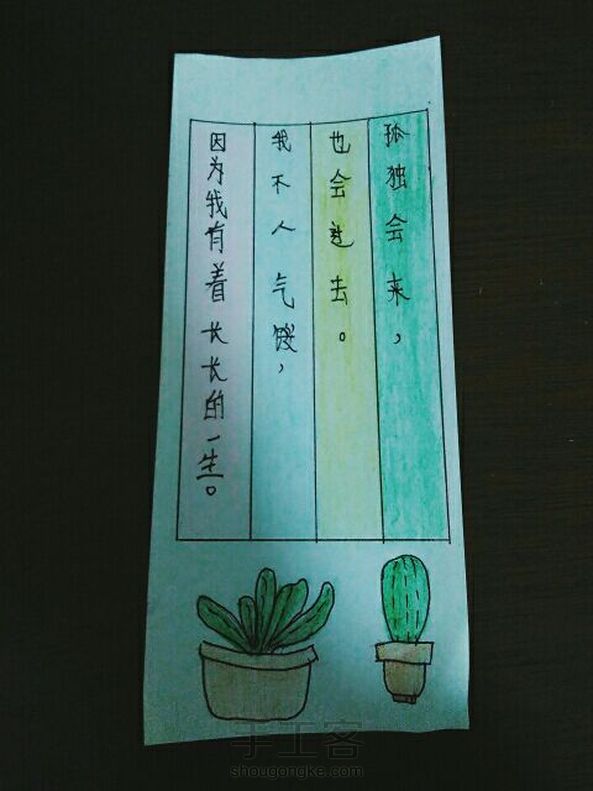 孤独会来，
也会过去。
我不人气馁，
因为我有着长长的一生。
手工客
shougongke.com